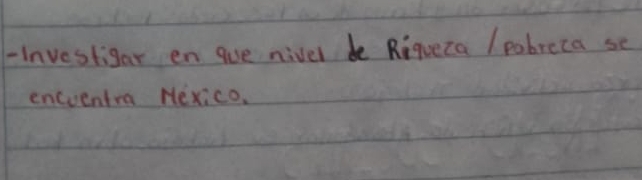 -Investigar en que nivel de Riqueza / pobreza se
encuentra México.